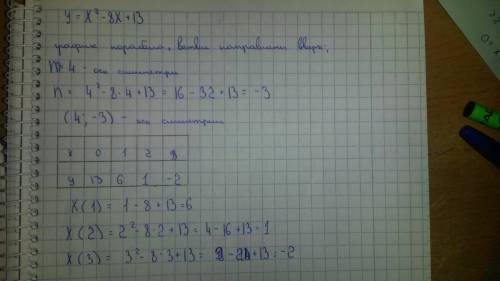 y = x² - 8x + 13
график парабола, ветви направлены вверх;
m = 4 - ось симметри
n = 4² - 8·4 + 13 = 16 - 32 + 13 = -3
(4; -3) - ось симметрии
x 0 1 2 3
y 13 6 1 -2
x(1) = 1 - 8 + 13 = 6
x(2) = 2² - 8·2 + 13 = 4 - 16 + 13 = 1
x(3) = 3² - 8·3 + 13 = 9 - 24 + 13 = -2